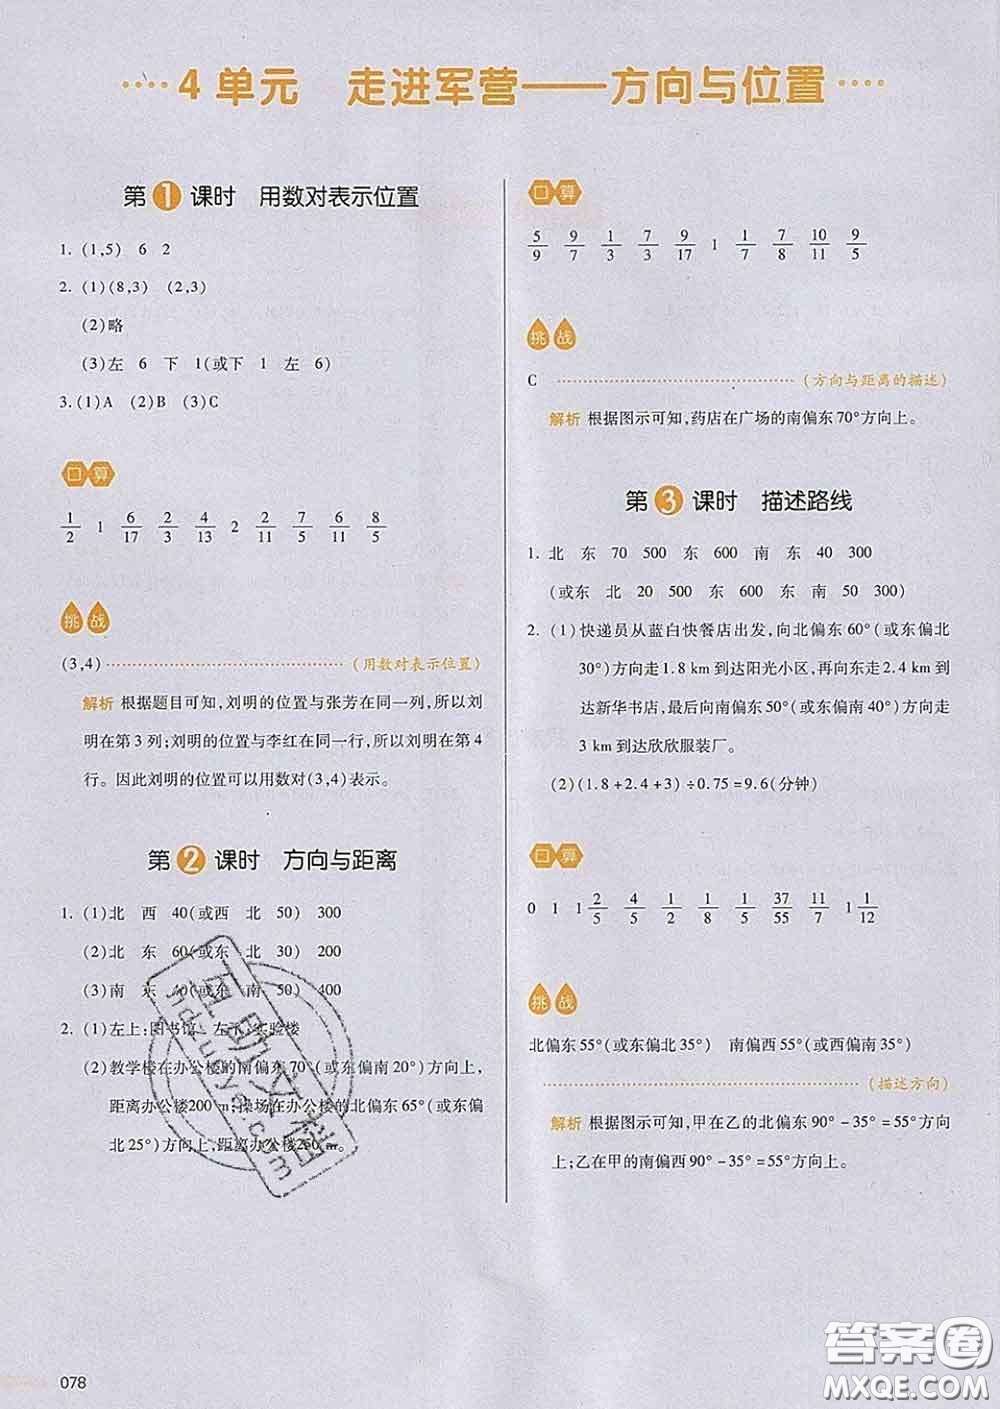 4 单元 走进军营——方向与位置
第1课时 用数对表示位置
1. (1,5) 6 2
2. (1)(8,3) (2,3)
(2)略
(3)左 6 下 1(或下 1 左 6)
3. (1)A (2)B (3)C
口算
1/2 1 6/17 2/3 4/13 2 2/11 7/5 6/11 8/5
挑战
(3,4) (用数对表示位置)
解析 根据题目可知,刘明的位置与张芳在同一列,所以刘
明在第3列;刘明的位置与李红在同一行,所以刘明在第4
行。因此刘明的位置可以用数对(3,4)表示。
第2课时 方向与距离
1. (1)北 西 40(或西 北 50) 300
(2)北 东 60(或东 北 30) 200
(3)南 东 40(或东 南 50) 400
2. (1)左上:图书馆 左下:实验楼
(2)教学楼在办公楼的南偏东70°(或东偏南20°)方向上,
距离办公楼200 m;操场在办公楼的北偏东65°(或东偏
北25°)方向上,距离办公楼250 m。
口算
5/9 9/7 1/3 7/3 9/17 1 1/7 7/8 10/11 9/5
挑战
C (方向与距离的描述)
解析 根据图示可知,药店在广场的南偏东70°方向上。
第3课时 描述路线
1. 北 东 70 500 东 600 南 东 40 300
(或东 北 20 500 东 600 东 南 50 300)
2. (1)快递员从蓝白快餐店出发,向北偏东60°(或东偏北
30°)方向走1.8 km到达阳光小区,再向东走2.4 km到
达新华书店,最后向南偏东50°(或东偏南40°)方向走
3 km到达欣欣服装厂。
(2)(1.8+2.4+3)÷0.75=9.6(分钟)
口算
0 1 1 2/5 4/5 1/2 1/8 1/5 37/55 11/7 1 1/12
挑战
北偏东55°(或东偏北35°) 南偏西55°(或西偏南35°)
(描述方向)
解析 根据图示可知,甲在乙的北偏东90°-35°=55°方向
上;乙在甲的南偏西90°-35°=55°方向上。
078
答案圈
MXQE.COM